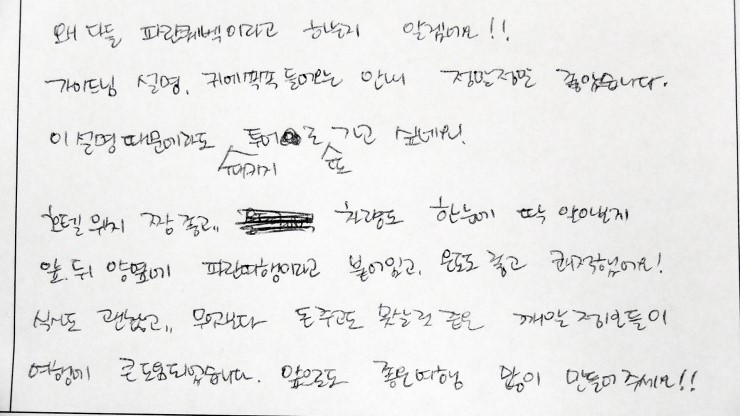 왜 다들 파란퀘벡이라고 하는지 알겠어요!!
가이드님 설명, 귀에 쏙쏙 들어오는 안내 정말정말 좋았습니다.
이 설명 때문이라도 투어로 가고 싶네요!
패키지 또
호텔 위치 짱 좋고,, 차량도 한눈에 딱 알아보게
앞, 뒤 양옆에 파란여행이라고 붙어있고, 온도도 좋고 쾌적했어요!
식사도 괜찮고,, 무엇보다 돈 주고도 못살것 같은 깨알 정보들이
여행에 큰 도움되었습니다. 앞으로도 좋은여행 많이 만들어주세요!!